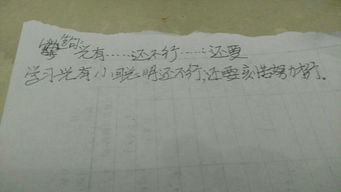 造句光有……还不行……还要
学习光有小聪明还不行,还要刻苦努力才行。